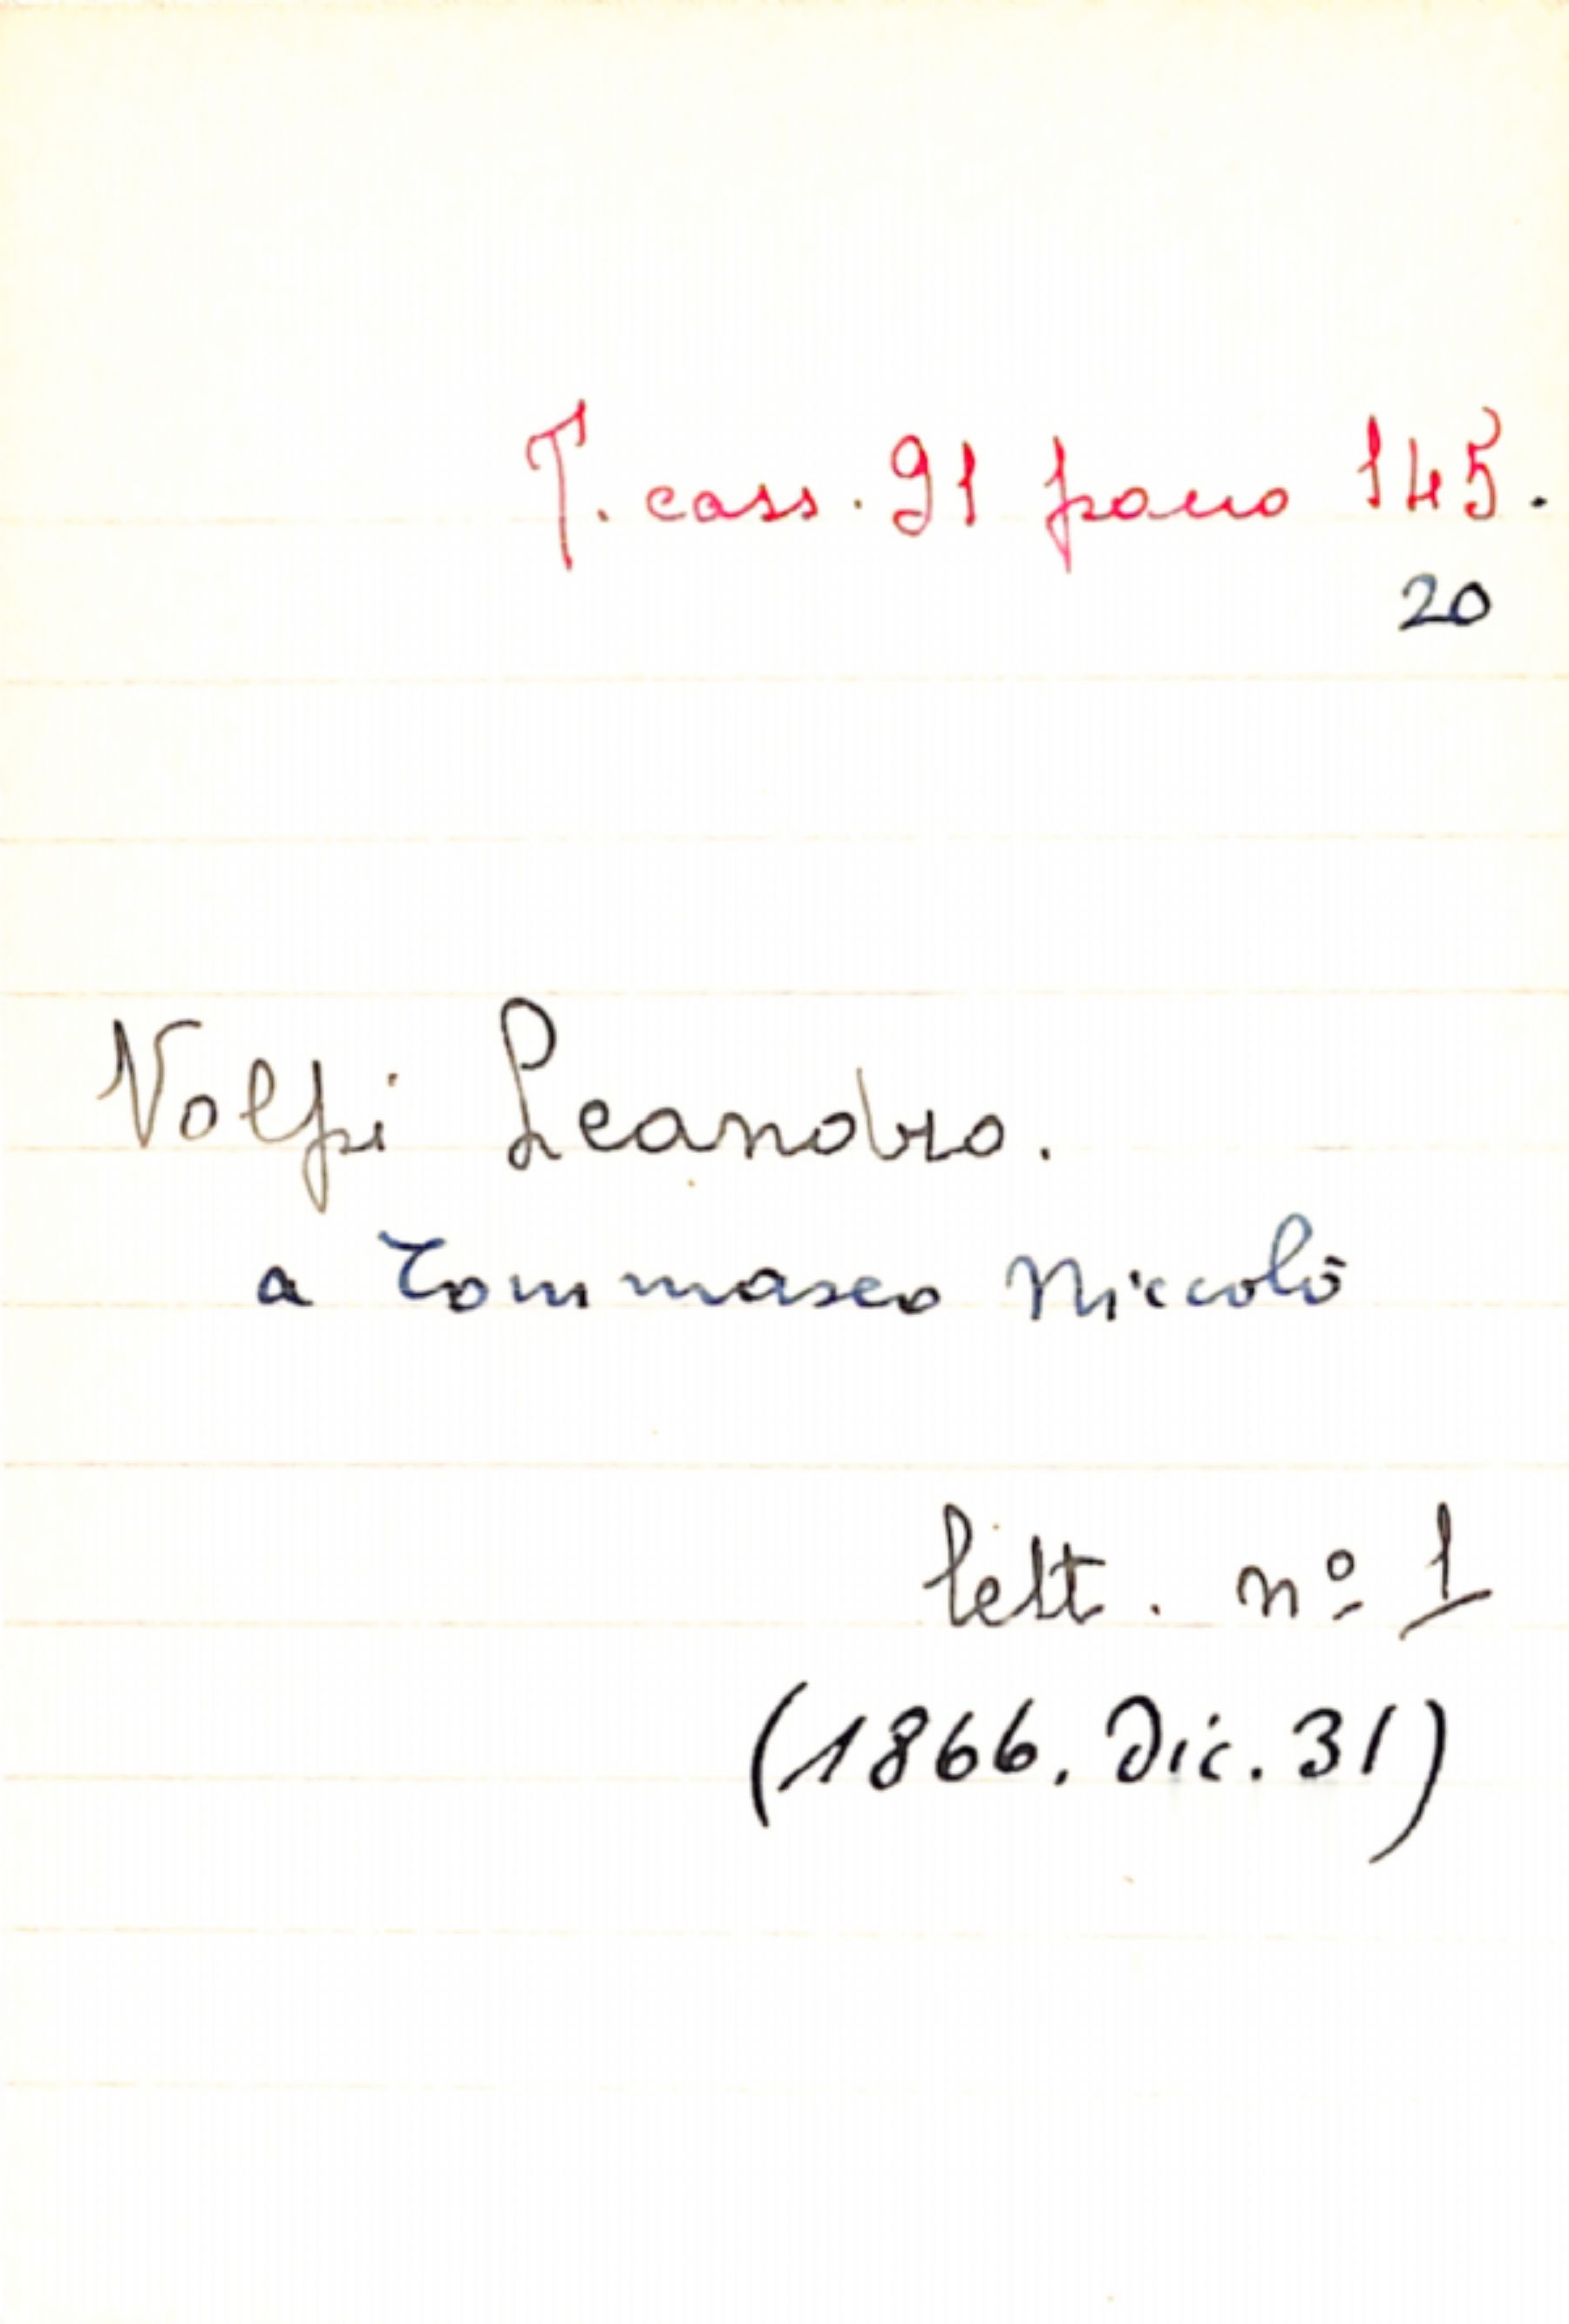 T. cass. 91 pacco 145.
20
Volpi Leandro.
a Tommaseo Niccolò
lett. nº 1
(1866. Dic. 31)